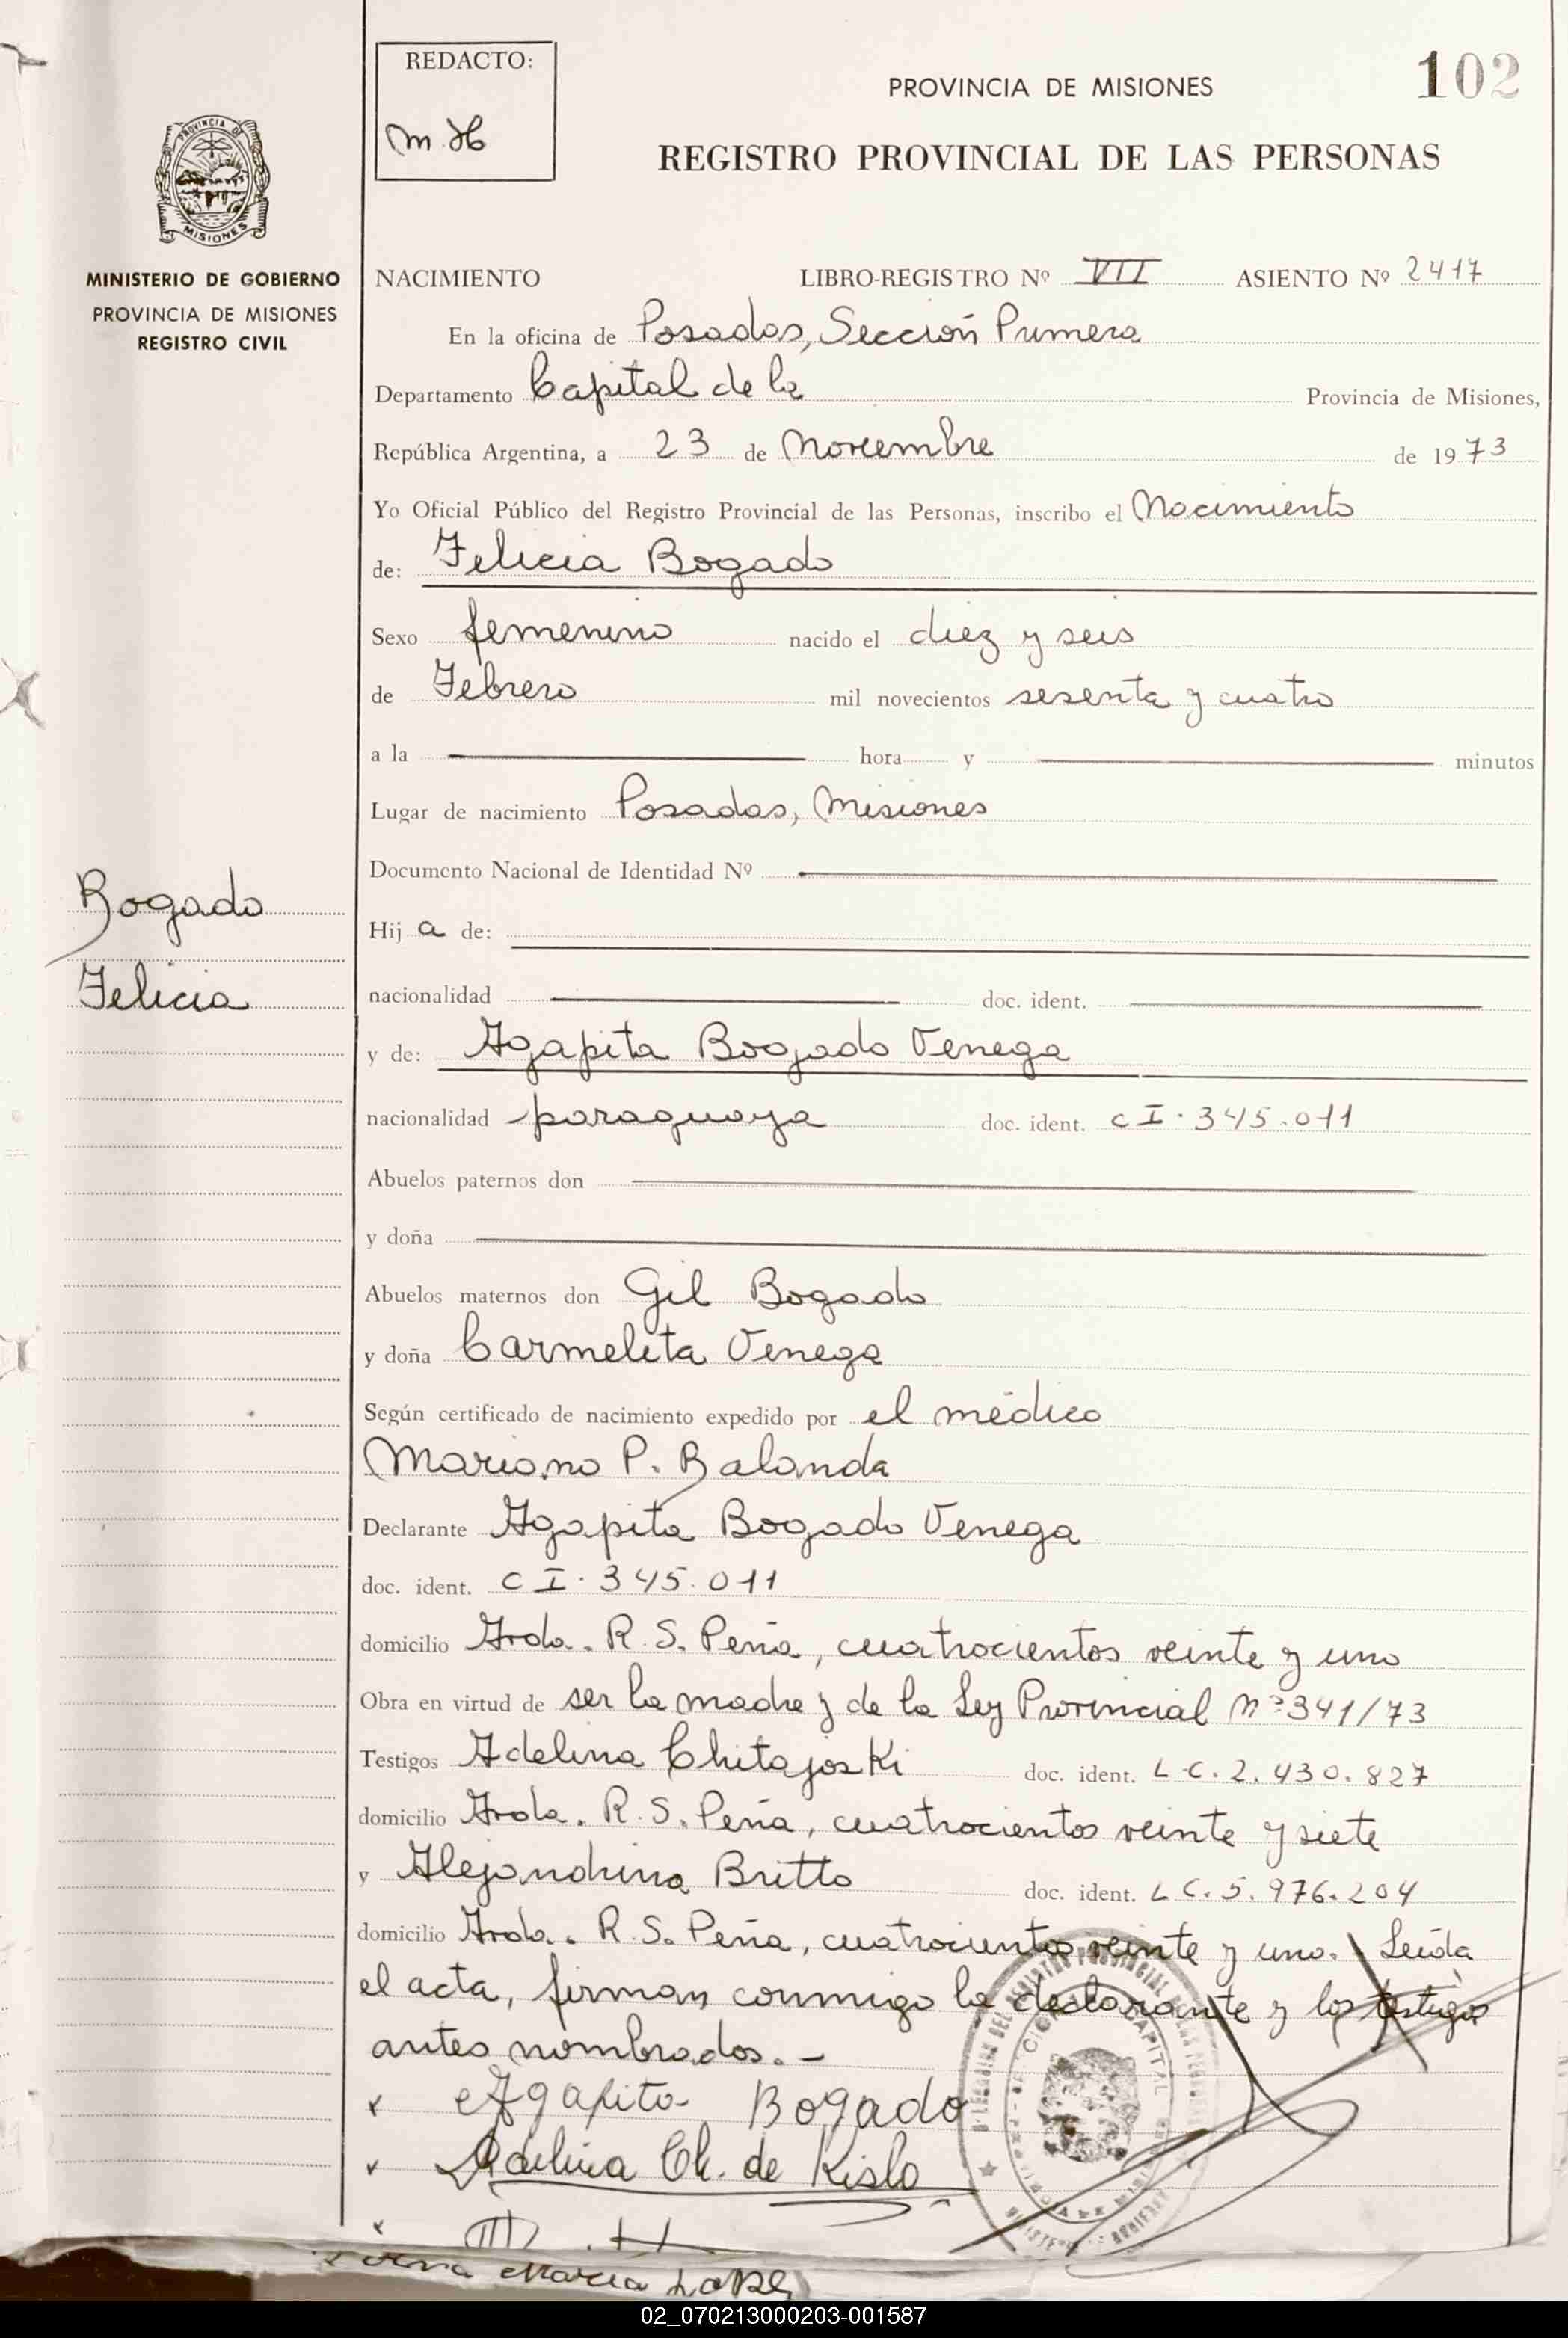 REDACTO:
m.H
102
PROVINCIA DE MISIONES
REGISTRO PROVINCIAL DE LAS PERSONAS
PROVINCIA DE
MISIONES
MINISTERIO DE GOBIERNO
PROVINCIA DE MISIONES
REGISTRO CIVIL
NACIMIENTO LIBRO-REGISTRO Nº VII ASIENTO Nº 2417
En la oficina de Posadas, Sección Primera
Departamento Capital de la Provincia de Misiones,
República Argentina, a 23 de Noviembre de 1973
Yo Oficial Público del Registro Provincial de las Personas, inscribo el Nacimiento
de: Felicia Bogado
Sexo femenino nacido el diez y seis
de Febrero mil novecientos sesenta y cuatro
a la hora y minutos
Lugar de nacimiento Posadas, Misiones
Documento Nacional de Identidad Nº
Bogado
Felicia
Hij a de:
nacionalidad doc. ident.
y de: Agapita Bogado Venega
nacionalidad paraguaya doc. ident. C I. 345.011
Abuelos paternos don
y doña
Abuelos maternos don Gil Bogado
y doña Carmelita Venega
Según certificado de nacimiento expedido por el médico
Mariano P. Balanda
Declarante Agapita Bogado Venega
doc. ident. C I. 345.011
domicilio Avda. R. S. Peña, cuatrocientos veinte y uno
Obra en virtud de ser la madre y de la Ley Provincial Nº 341/73
Testigos Adelina Chitajoski doc. ident. L.C. 2.430.827
domicilio Avda. R. S. Peña, cuatrocientos veinte y siete
y Alejandrina Britto doc. ident. L C. 5.976.204
domicilio Avda. R S. Peña, cuatrocientos veinte y uno. Leída
el acta, firman conmigo la declarante y los testigos
antes nombrados.-
Agapita Bogado
Adelina Ch. de Kislo
02_070213000203-001587